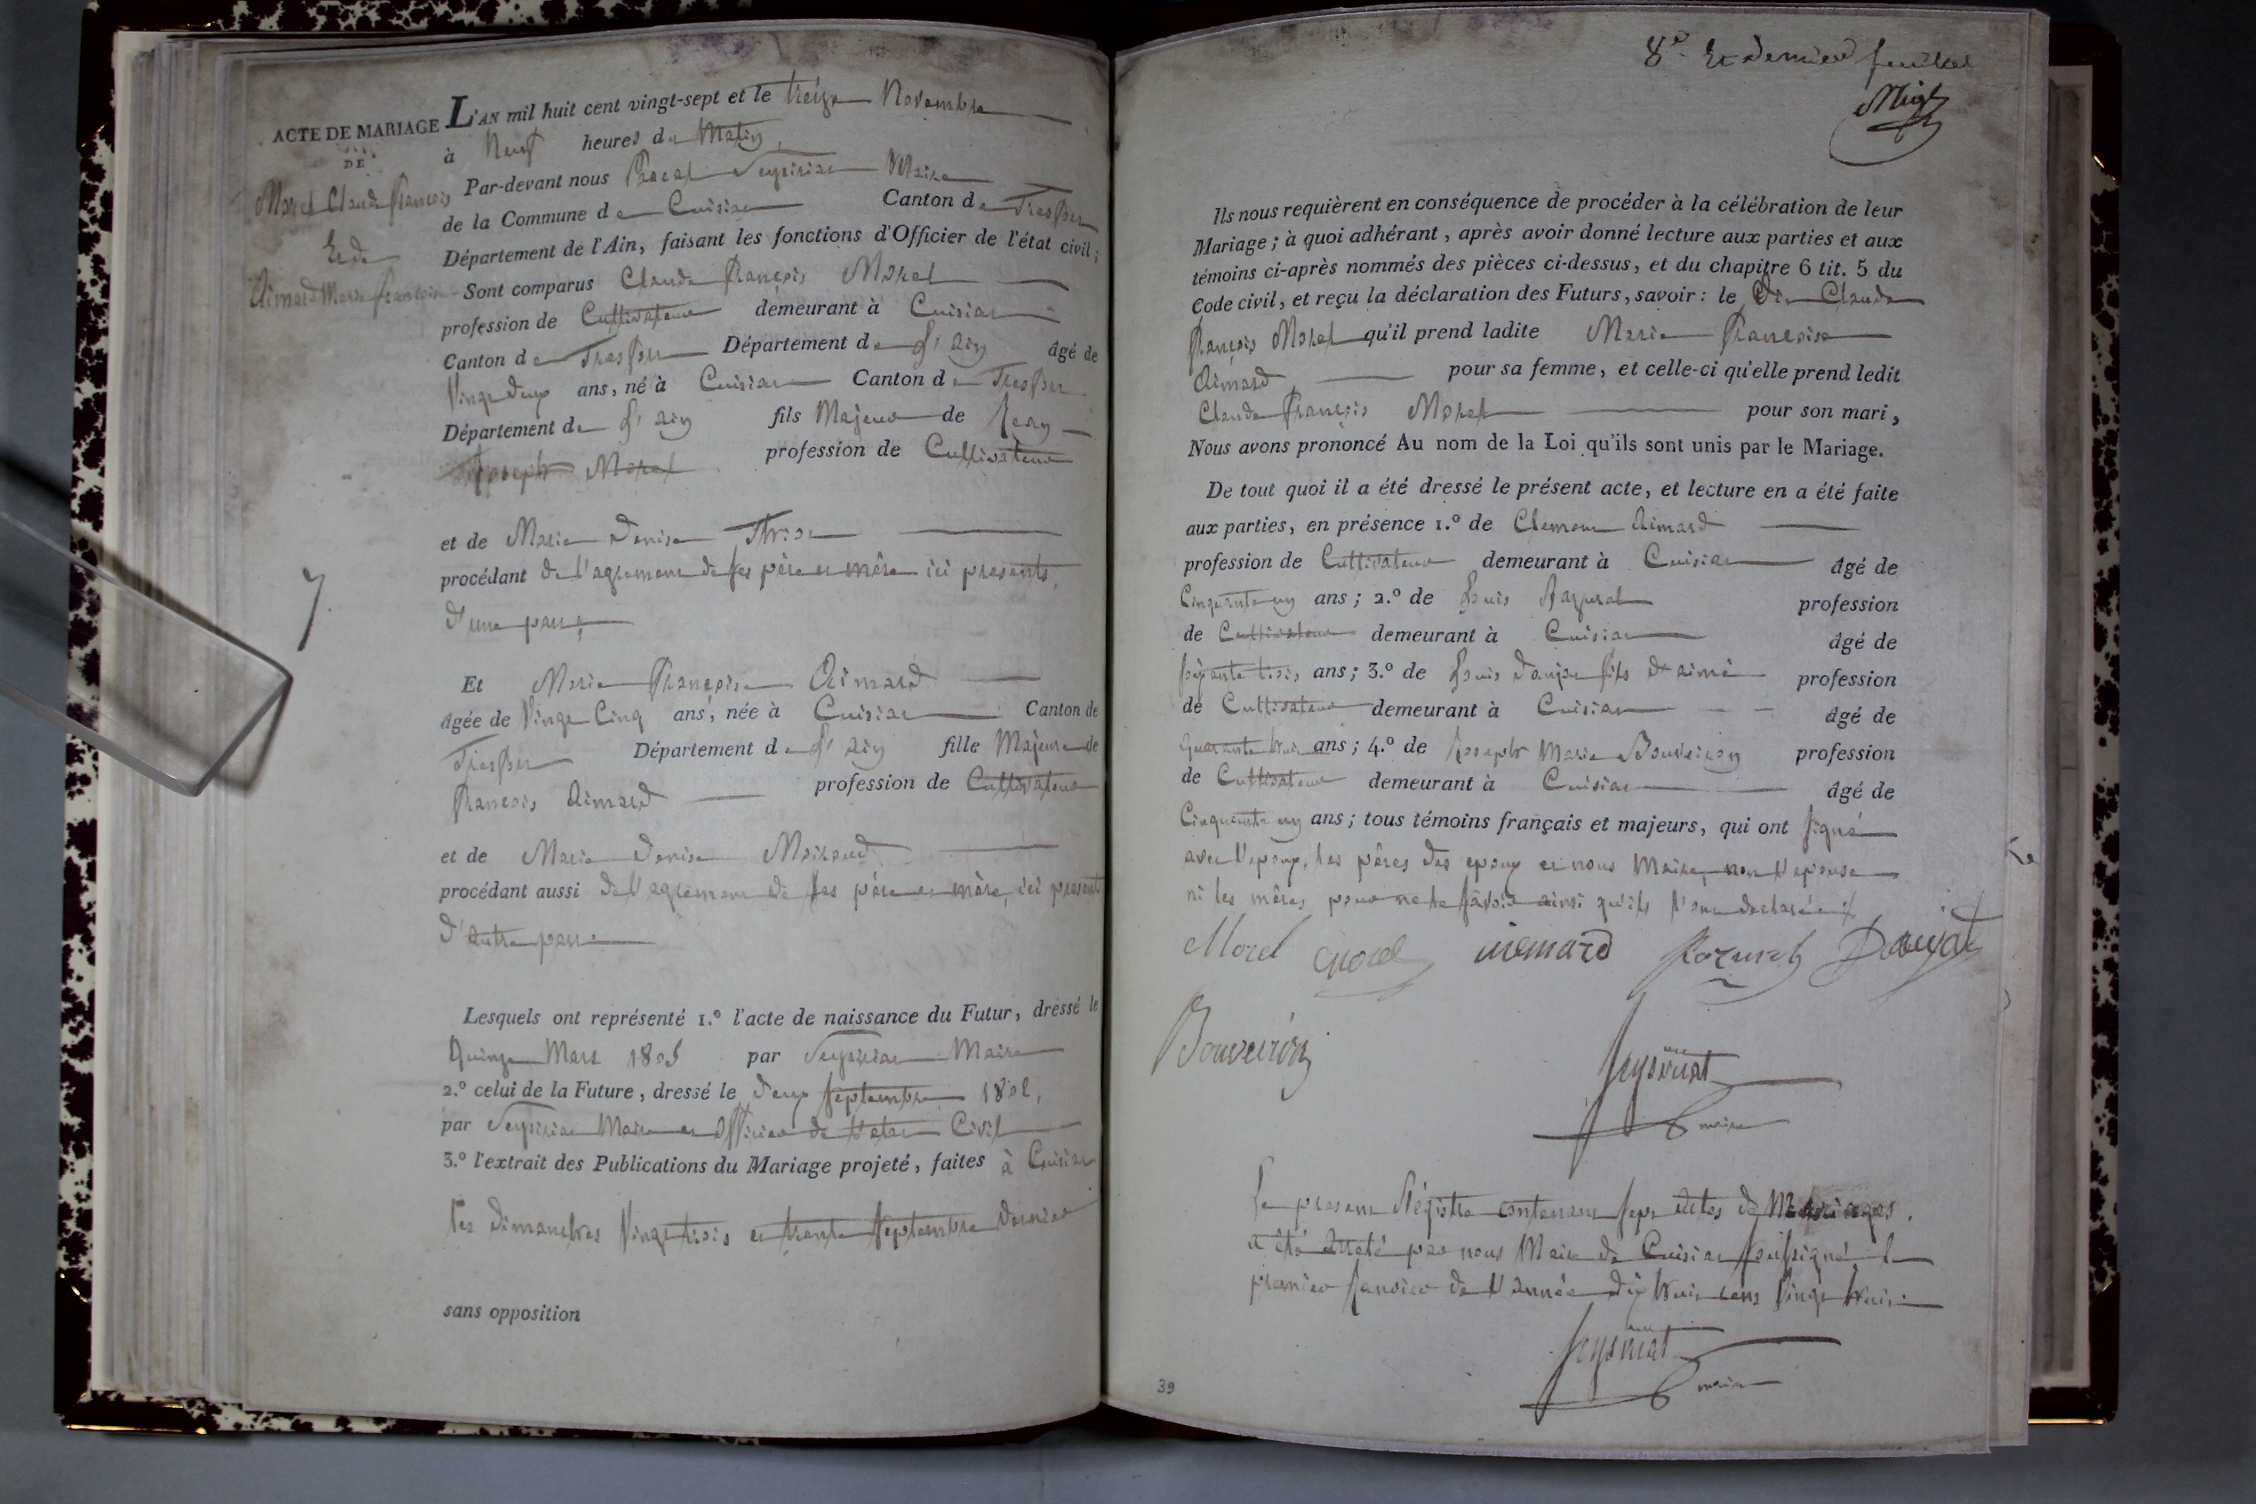 ACTE DE MARIAGE
DE
Morel Claude François
Et de
Aimard Marie françoise
7.
L'AN mil huit cent vingt-sept et le treize Novembre
à Neuf heures du Matin,
Par-devant nous Pascal Seysiriat Maire
de la Commune de Cuisiat Canton de Treffort
Département de l'Ain, faisant les fonctions d'Officier de l'état civil;
Sont comparus Claude François Morel
profession de Cultivateur demeurant à Cuisiat
Canton de Treffort Département de L'ain âgé de
Vingt deux ans, né à Cuisiat Canton de Treffort
Département de L'ain fils Majeur de Jean
Joseph Morel profession de Cultivateur
et de Marie Denise
procédant de l'agrement de ses père et mère ici presents,
d'une part,
Et Marie Françoise Aimard
âgée de Vingt Cinq ans, née à Cuisiat Canton de
Treffort Département de L'ain fille Majeure de
François Aimard profession de Cultivateur
et de Marie Denise Moiraud
procédant aussi de l'agrement de ses père et mère, ici present
d'autre part
Lesquels ont représenté 1.º l'acte de naissance du Futur, dressé le
Quinze Mars 1805 par Seysiriat Maire
2.º celui de la Future, dressé le deux septembre 1802,
par Seysiriat Maire et officier de l'etat Civil
3.º l'extrait des Publications du Mariage projeté, faites à Cuisiat
les dimanches Vingt trois et trente septembre dernier
sans opposition
8e Et dernier feuillet
Ils nous requièrent en conséquence de procéder à la célébration de leur
Mariage; à quoi adhérant, après avoir donné lecture aux parties et aux
témoins ci-après nommés des pièces ci-dessus, et du chapitre 6 tit. 5 du
Code civil, et reçu la déclaration des Futurs, savoir: le Dit Claude
François Morel qu'il prend ladite Marie Françoise
Aimard pour sa femme, et celle-ci qu'elle prend ledit
Claude François Morel pour son mari,
Nous avons prononcé Au nom de la Loi qu'ils sont unis par le Mariage.
De tout quoi il a été dressé le présent acte, et lecture en a été faite
aux parties, en présence 1.º de Clement Aimard
profession de Cultivateur demeurant à Cuisiat âgé de
Cinquante un ans; 2.º de Louis Razurel profession
de Cultivateur demeurant à Cuisiat âgé de
soixante trois ans; 3.º de Louis Daujat fils d'aimé profession
de Cultivateur demeurant à Cuisiat âgé de
quarante huit ans; 4.º de Joseph Marie Bouveiron profession
de Cultivateur demeurant à Cuisiat âgé de
Cinquante un ans; tous témoins français et majeurs, qui ont signé
avec l'epoux, les pères des epoux et nous Maire, non l'epouse
ni les mères pour ne le savoir ainsi qu'ils l'ont declaré
Morel Morel Razurel Daujat
Bouveiron
Seysiriat
maire
Le present Régistre contenant sept actes de Mariages.
a été arreté par nous Maire de Cuisiat soussigné le
premier Janvier de l'année dix huit cent vingt huit
Seysiriat
maire
39